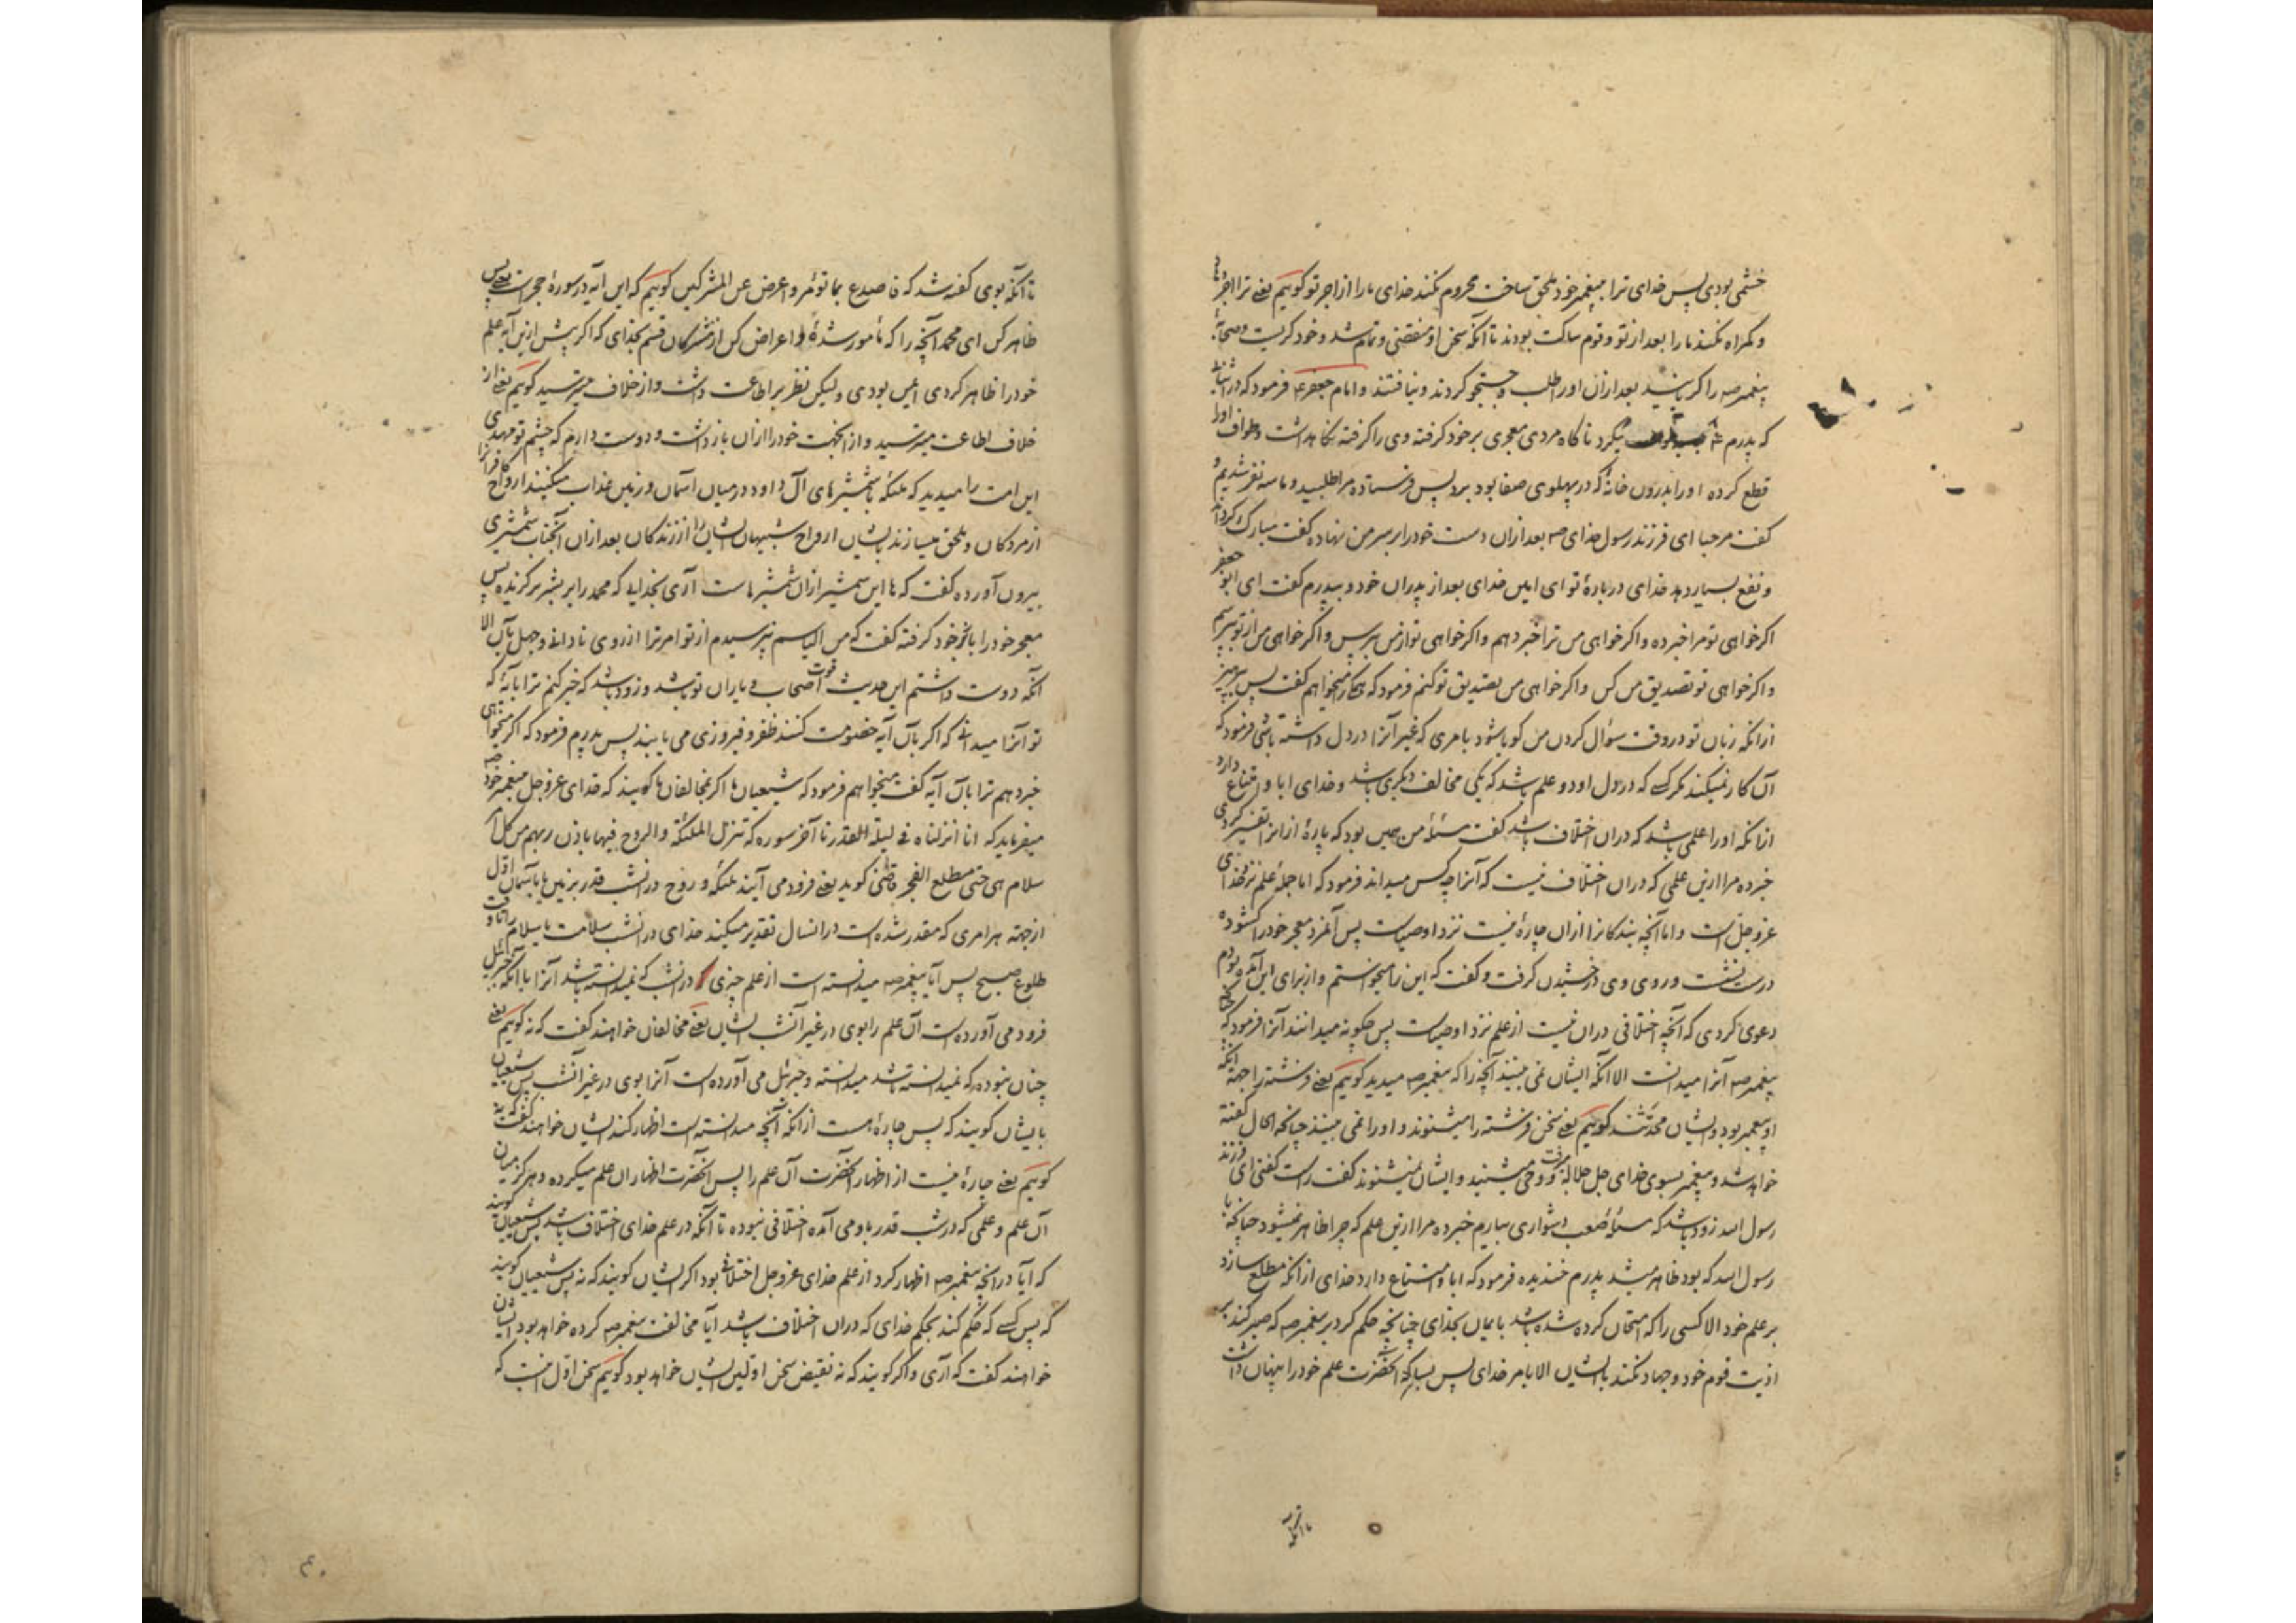 خشمی بودی پس خدای ترا به پیغمبر خود ملحق ساخت محروم نکند خدای ما را از اجر تو کوئیم یعنی ترا اجر
و کمراه نکند ما را بعد از تو و قوم ساکت بودند تا آنکه سخن او منقضی و تمام شد و خود کریست و صحابه
پیغمبر صه را کریانید بعد ازان او را طلب و جستجو کردند و نیافتند و امام جعفر ع فرمود که در اثنای
که پدرم طواف میکرد ناکاه مردی معجری بر خود کرفته وی را کرفته نکاهداشت و طواف او را
قطع کرده او را بدرون خانهٔ که در پهلوی صفا بود برد پس فرستاده مرا طلبید و ما سه نفر شدیم و
کفت مرحبا ای فرزند رسول خدای صه بعد ازان دست خود را بر سر من نهاده کفت مبارک کرداند
و نفع بسیار دهد خدای در بارهٔ تو ای امین خدای بعد از پدران خود و بپدرم کفت ای ابو جعفر
اکر خواهی تو مرا خبر ده و اکر خواهی من ترا خبر دهم و اکر خواهی تو از من بپرس و اکر خواهی من از تو بپرسم
و اکر خواهی تو تصدیق من کن و اکر خواهی من تصدیق تو کنم فرمود که همه را میخواهم کفت پس بپرهیز
از آنکه زبان تو در وقت سؤال کردن من کویا شود بامری که غیر آنرا در دل داشته باشی فرمود که
آن کار نمیکند مکر کسی که در دل او دو علم باشد که یکی مخالف دیکری باشد و خدای ابا و امتناع دارد
از آنکه او را علمی باشد که دران اختلاف باشد کفت مسئلهٔ من همین بود که پارهٔ ازانرا تفسیر کردی
خبر ده مرا ازین علمی که دران اختلاف نیست که آنرا چه کس میداند فرمود که اما جملهٔ علم نزد خدای
عز و جل است و اما آنچه بندکانرا ازان چارهٔ نیست نزد اوصیاست پس آنمرد معجر خود را کشوده
درست نشست و روی وی درخشیدن کرفت و کفت که این را میخواستم و از برای این آمده بودم
دعوی کردی که آنچه اختلافی دران نیست از علم نزد اوصیاست پس چکونه میدانند آنرا فرمود که چنانچه
پیغمبر صه آنرا میدانست الا آنکه ایشان نمی بینند آنچه را که پیغمبر صه میدید کوئیم یعنی فرشته را جهة آنکه
او پیغمبر بود و ایشان محدّثند کوئیم یعنی سخن فرشته را میشنوند و او را نمی بینند چنانکه الحال کفته
خواهد شد و پیغمبر بسوی خدای جل جلاله میرفت و وحی میشنید و ایشان نمیشنوند کفت راست کفتی ای فرزند
رسول الله زود باشد که مسئلهٔ صعب دشواری بیارم خبر ده مرا ازین علم که چرا ظاهر نمیشود چنانکه با
رسول الله که بود ظاهر میشد پدرم خندیده فرمود که ابا و امتناع دارد خدای از آنکه مطلع سازد
بر علم خود الا کسی را که امتحان کرده شده باشد بایمان بخدای چنانچه حکم کرد بر پیغمبر صه که صبر کند بر
اذیت قوم خود و جهاد نکند با ایشان الا بامر خدای پس بسا که آنحضرت علم خود را پنهان داشت
تا آنکه
تا آنکه بوی کفته شد که فاصدع بما تؤمر و اعرض عن المشرکین کوئیم که این آیه در سورهٔ حجر است یعنی پس
ظاهر کن ای محمد آنچه را که مأمور شدهٔ و اعراض کن از مشرکان قسم بخدای که اکر پیش ازین آیه علم
خود را ظاهر کردی ایمن بودی و لیکن نظر بر اطاعت داشت و از خلاف میترسید کوئیم یعنی از
خلاف اطاعت میترسید و از آنجهت خود را ازان باز داشت و دوست دارم که چشم تو مهدی
این امت را میدید که ملئکه با شمشیرهای آل داود در میان آسمان و زمین عذاب میکنند ارواح کافرانرا
از مردکان و ملحق میسازند بایشان ارواح شبیهان ایشان را از زندکان بعد ازان آنجناب شمشیری
بیرون آورده کفت که ها این شمشیر ازان شمشیرهاست آری بخدایی که محمد را بر بشر برکزیده پس
معجر خود را باز بر خود کرفته کفت که من الیاسم نپرسیدم از تو امر ترا از روی نادانی و جهل بآن الا
آنکه دوست داشتم این حدیث قوت اصحاب و یاران تو باشد و زود باشد که خبر کنم ترا بآیهٔ که
تو آنرا میدانی که اکر بآن آیه خصومت کنند ظفر و فیروزی می یابند پس پدرم فرمود که اکر میخواهی
خبر دهم ترا بآن آیه کفت میخواهم فرمود که شیعیان ما اکر بمخالفان ما کویند که خدای عز و جل به پیغمبر خود صه
میفرماید که انا انزلناه فی لیلة القدر تا آخر سوره که تنزل الملئکة و الروح فیها باذن ربهم من کل امر
سلام هی حتی مطلع الفجر قاضی کوید یعنی فرود می آیند ملئکه و روح در آنشب قدر بزمین یا بآسمان اوّل
از جهة هر امری که مقدر شده است در آنسال تقدیر میکند خدای در آنشب سلامت یا سلام را تا وقت
طلوع صبح پس آیا پیغمبر صه میدانسته است از علم چیزی که در آنشب که نمیدانسته باشد آنرا یا آنکه جبرئیل
فرود می آورده است آن علم را بوی در غیر آنشب ایشان یعنی مخالفان خواهند کفت که نه کوئیم یعنی
چنان نبوده که نمیدانسته باشد میدانسته و جبرئیل می آورده است آنرا بوی در غیر آنشب پس شیعیان
بایشان کویند که پس چارهٔ هست از آنکه آنچه میدانسته است اظهار کند ایشان خواهند کفت که نه
کوئیم یعنی چارهٔ نیست از اظهار آنحضرت آن علم را پس آنحضرت اظهار آن علم میکرده و هرکز میان
آن علم و علمی که در شب قدر باو می آمده اختلافی نبوده تا آنکه در علم خدای اختلاف باشد پس شیعیان کویند
که آیا در آنچه پیغمبر صه اظهار کرد از علم خدای عز و جل اختلافی بود اکر ایشان کویند که نه پس شیعیان کویند
که پس کسی که حکم کند بحکم خدای که دران اختلاف باشد آیا مخالفت پیغمبر صه کرده خواهد بود ایشان
خواهند کفت که آری و اکر کویند که نه نقیض سخن اولین ایشان خواهد بود کوئیم سخن اوّل اینست که